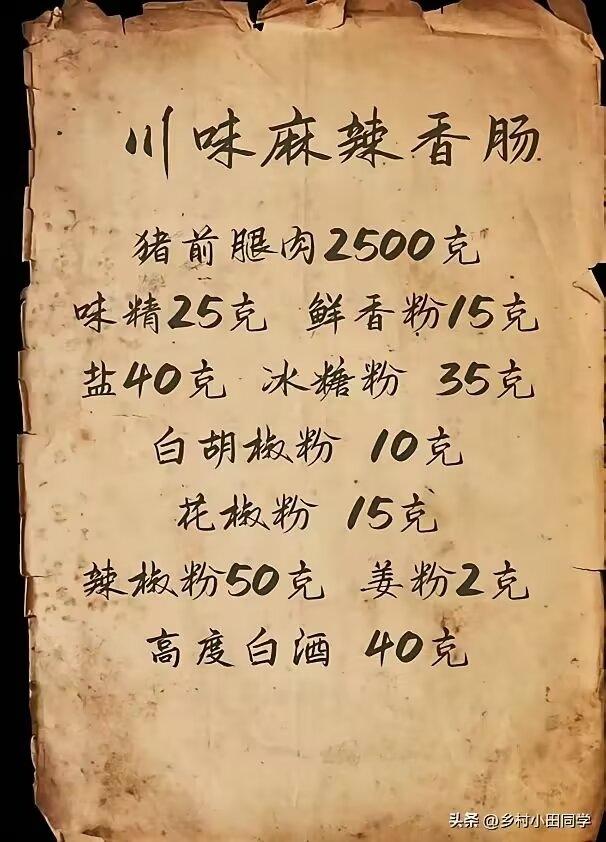 川味麻辣香肠
猪前腿肉2500克
味精25克 鲜香粉15克
盐40克 冰糖粉 35克
白胡椒粉 10克
花椒粉 15克
辣椒粉50克 姜粉2克
高度白酒 40克
头条 @乡村小田同学